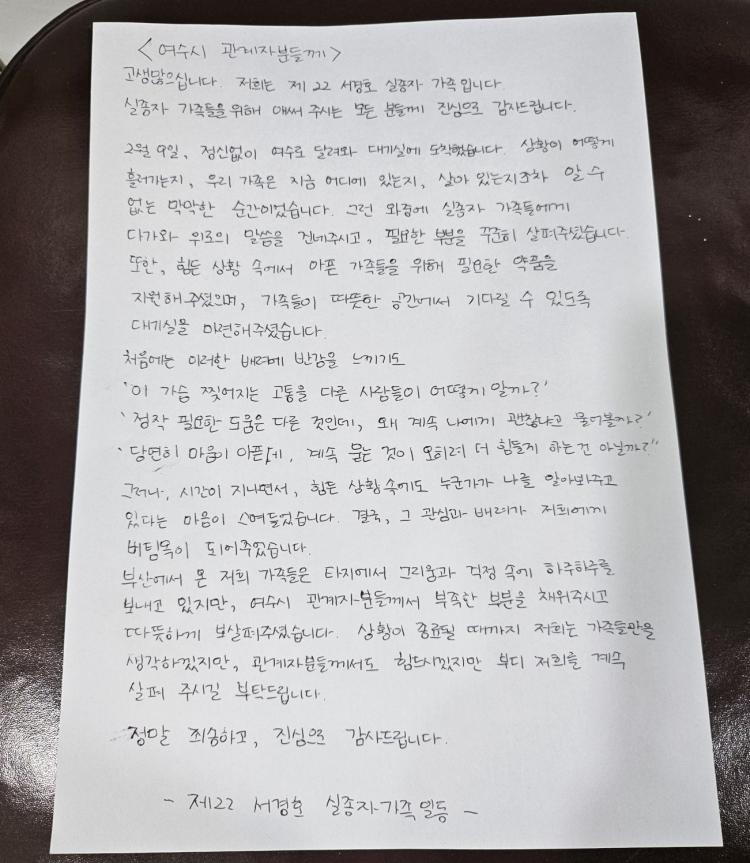 <여수시 관계자분들께>
고생많으십니다. 저희는 제22 서경호 실종자 가족입니다.
실종자 가족들을위해 애써 주시는 모든 분들께 진심으로 감사드립니다.
2월 9일, 정신없이 여수로 달려와 대기실에 도착했습니다. 상황이 어떻게
흘러가는지, 우리 가족은 지금 어디에 있는지, 살아 있는지조차 알 수
없는 막막한 순간이었습니다. 그런 와중에 실종자 가족들에게
다가와 위로의 말씀을 건네주시고, 필요한 부분을 꾸준히 살펴주셨습니다.
또한, 힘든 상황 속에서 아픈 가족들을 위해 필요한 약품을
지원해주셨으며, 가족들이 따뜻한 공간에서 기다릴 수 있도록
대기실을 마련해주셨습니다.
처음에는 이러한 배려에 반감을 느끼기도
'이 가슴 찢어지는 고통을 다른 사람들이 어떻게 알까?'
'정작 필요한 도움은 다른 것인데, 왜 계속 나에게 괜찮냐고 물어볼까?'
'당연히 마음이 아픈데, 계속 묻는 것이 오히려 더 힘들게 하는건 아닐까?'
그러나, 시간이 지나면서, 힘든 상황속에도 누군가가 나를 알아봐주고
있다는 마음이 스며들었습니다. 결국, 그 관심과 배려가 저희에게
버팀목이 되어주었습니다.
부산에서 온 저희 가족들은 타지에서 그리움과 걱정 속에 하루하루를
보내고 있지만, 여수시 관계자분들께서 부족한 부분을 채워주시고
따뜻하게 보살펴주셨습니다. 상황이 종료될 때까지 저희는 가족들만을
생각하겠지만, 관계자분들께서도 힘드시겠지만 부디 저희를 계속
살펴 주시길 부탁드립니다.
정말 죄송하고, 진심으로 감사드립니다.
- 제22 서경호 실종자가족일동 -